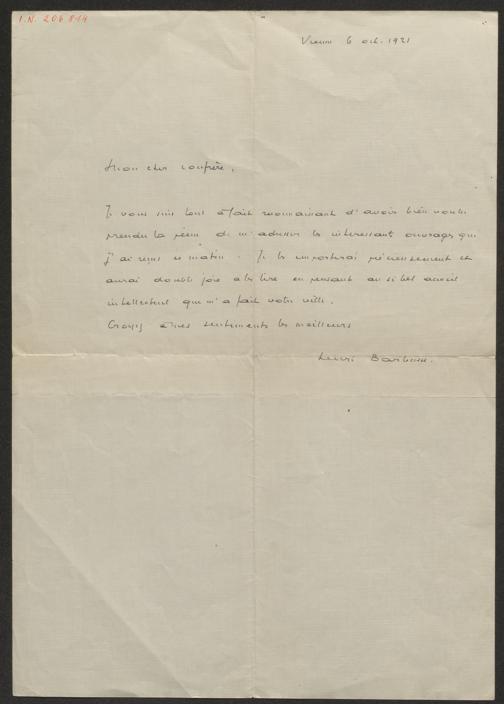 I.N. 206.814
Vienne 6 oct. 1921
Mon cher confrère,
Je vous suis tout à fait reconnaissant d'avoir bien voulu
prendre la peine de m'adresser les intéressants ouvrages que
j'ai reçus ce matin. Je les emporterai précieusement et
aurai double joie à les lire en pensant au si bel accueil
intellectuel que m'a fait votre ville.
Croyez à mes sentiments les meilleurs
Henri Barbusse.